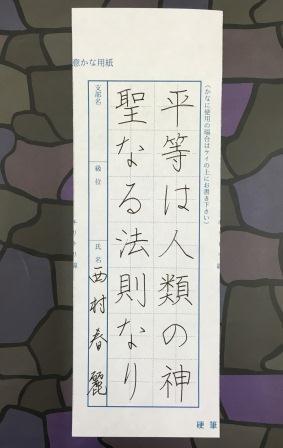 意かな用紙
(かなに使用の場合はケイの上にお書き下さい)
平等は人類の神
聖なる法則なり
支部名
級位
氏名
西村春麗
キリトリ線
硬筆